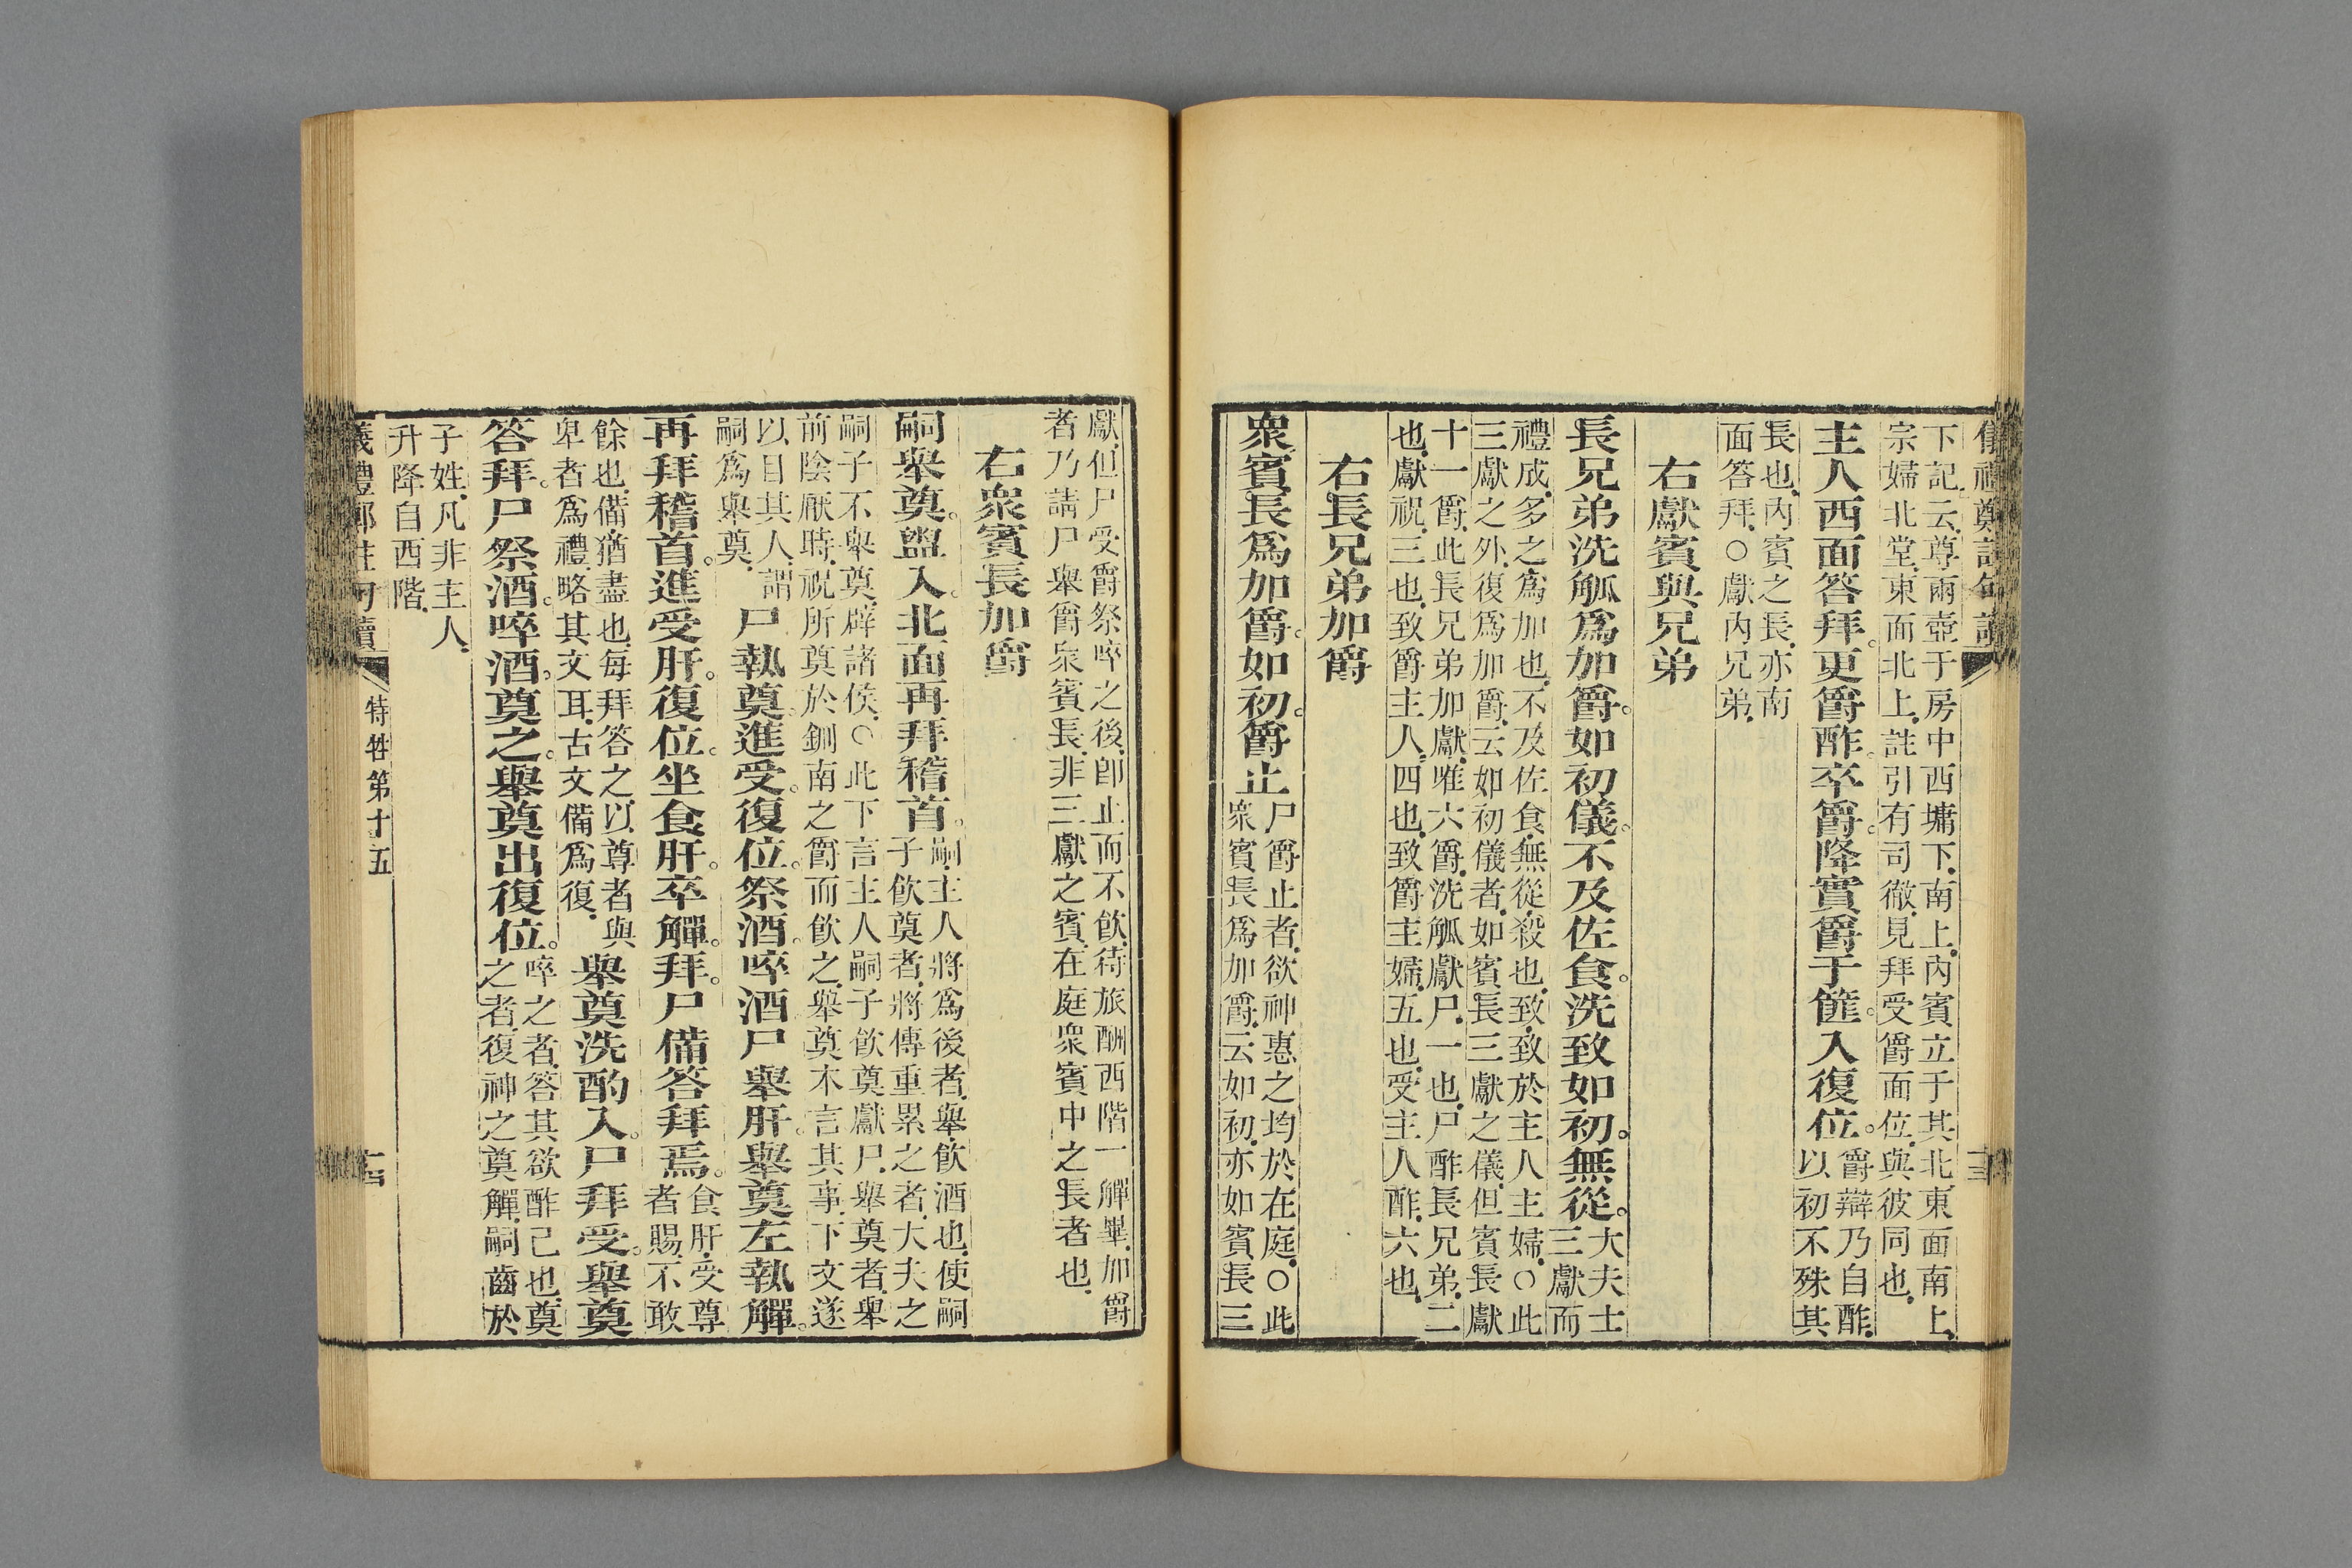 儀禮鄭註句讀
十三
下記云、尊兩壺于房中西墉下、南上、內賓立于其北、東面南上、
宗婦北堂、東面北上、註引有司徹、見拜受爵面位、與彼同也、
主人西面答拜。更爵酢。卒爵。降實爵于篚。入復位。爵辯乃自酢、
以初不殊其
長也、內賓之長、亦南
面答拜、○獻內兄弟、
右獻賓與兄弟
長兄弟洗觚爲加爵。如初儀。不及佐食。洗致如初。無從。大夫士
三獻而
禮成、多之爲加也、不及佐食、無從、殺也、致、致於主人主婦、○此
三獻之外、復爲加爵、云如初儀者、如賓長三獻之儀、但賓長獻
十一爵、此長兄弟加獻、唯六爵、洗觚獻尸、一也、尸酢長兄弟、二
也、獻祝、三也、致爵主人、四也、致爵主婦、五也、受主人酢、六也、
右長兄弟加爵
衆賓長爲加爵。如初。爵止尸爵止者、欲神惠之均於在庭、○此
衆賓長爲加爵、云如初、亦如賓長三
獻、但尸受爵祭啐之後、卽止而不飲、待旅酬西階一觶畢、加爵
者乃請尸舉爵、衆賓長、非三獻之賓、在庭衆賓中之長者也、
右衆賓長加爵
嗣舉奠。盥入。北面再拜稽首。嗣、主人將爲後者、舉、飲酒也、使嗣
子飲奠者、將傳重累之者、大夫之
嗣子不舉奠、辟諸侯、○此下言主人嗣子飲奠獻尸、舉奠者、舉
前陰厭時、祝所奠於鉶南之爵而飲之、舉奠本言其事、下文遂
以目其人、謂
嗣爲舉奠、
尸執奠。進受。復位。祭酒。啐酒尸舉肝。舉奠左執觶。
再拜稽首。進受肝。復位。坐食肝。卒觶。拜。尸備答拜焉。食肝、受尊
者賜、不敢
餘也、備猶盡也、每拜答之、以尊者與
卑者爲禮、略其文耳、古文備爲復、
舉奠洗酌入。尸拜受。舉奠
答拜。尸祭酒。啐酒。奠之。舉奠出復位。啐之者、答其欲酢己也、奠
之者、復神之奠觶、嗣齒於
子姓、凡非主人、
升降自西階、
儀禮鄭註句讀
特牲第十五
十四